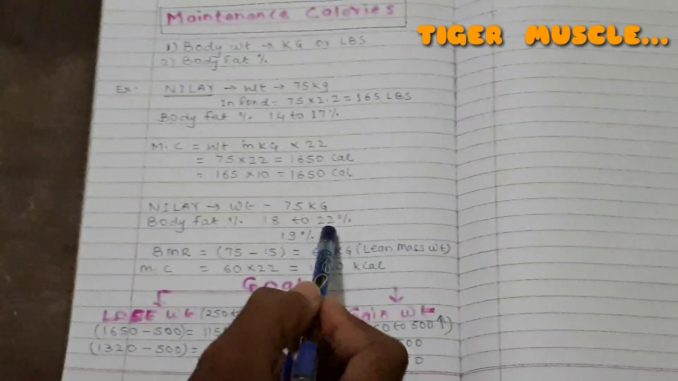 Maintenance Calories
TIGER MUSCLE...
1) Body wt → KG or LBS
2) Body Fat %
Ex:- NILAY → wt → 75kg
In Pond = 75 x 2.2 = 165 LBS
Body fat % 14 to 17%
M.C = wt in KG x 22
= 75 x 22 = 1650 Cal
= 165 x 10 = 1650 Cal
NILAY → wt - 75 KG
Body fat % 18 to 22%
19%
BMR = (75 - 15) = KG (Lean mass wt)
M.C = 60 x 22 = kcal
Goal
LOSE wt GAIN wt
(1650 - 500) = to 500↑)
(1320 - 500) =